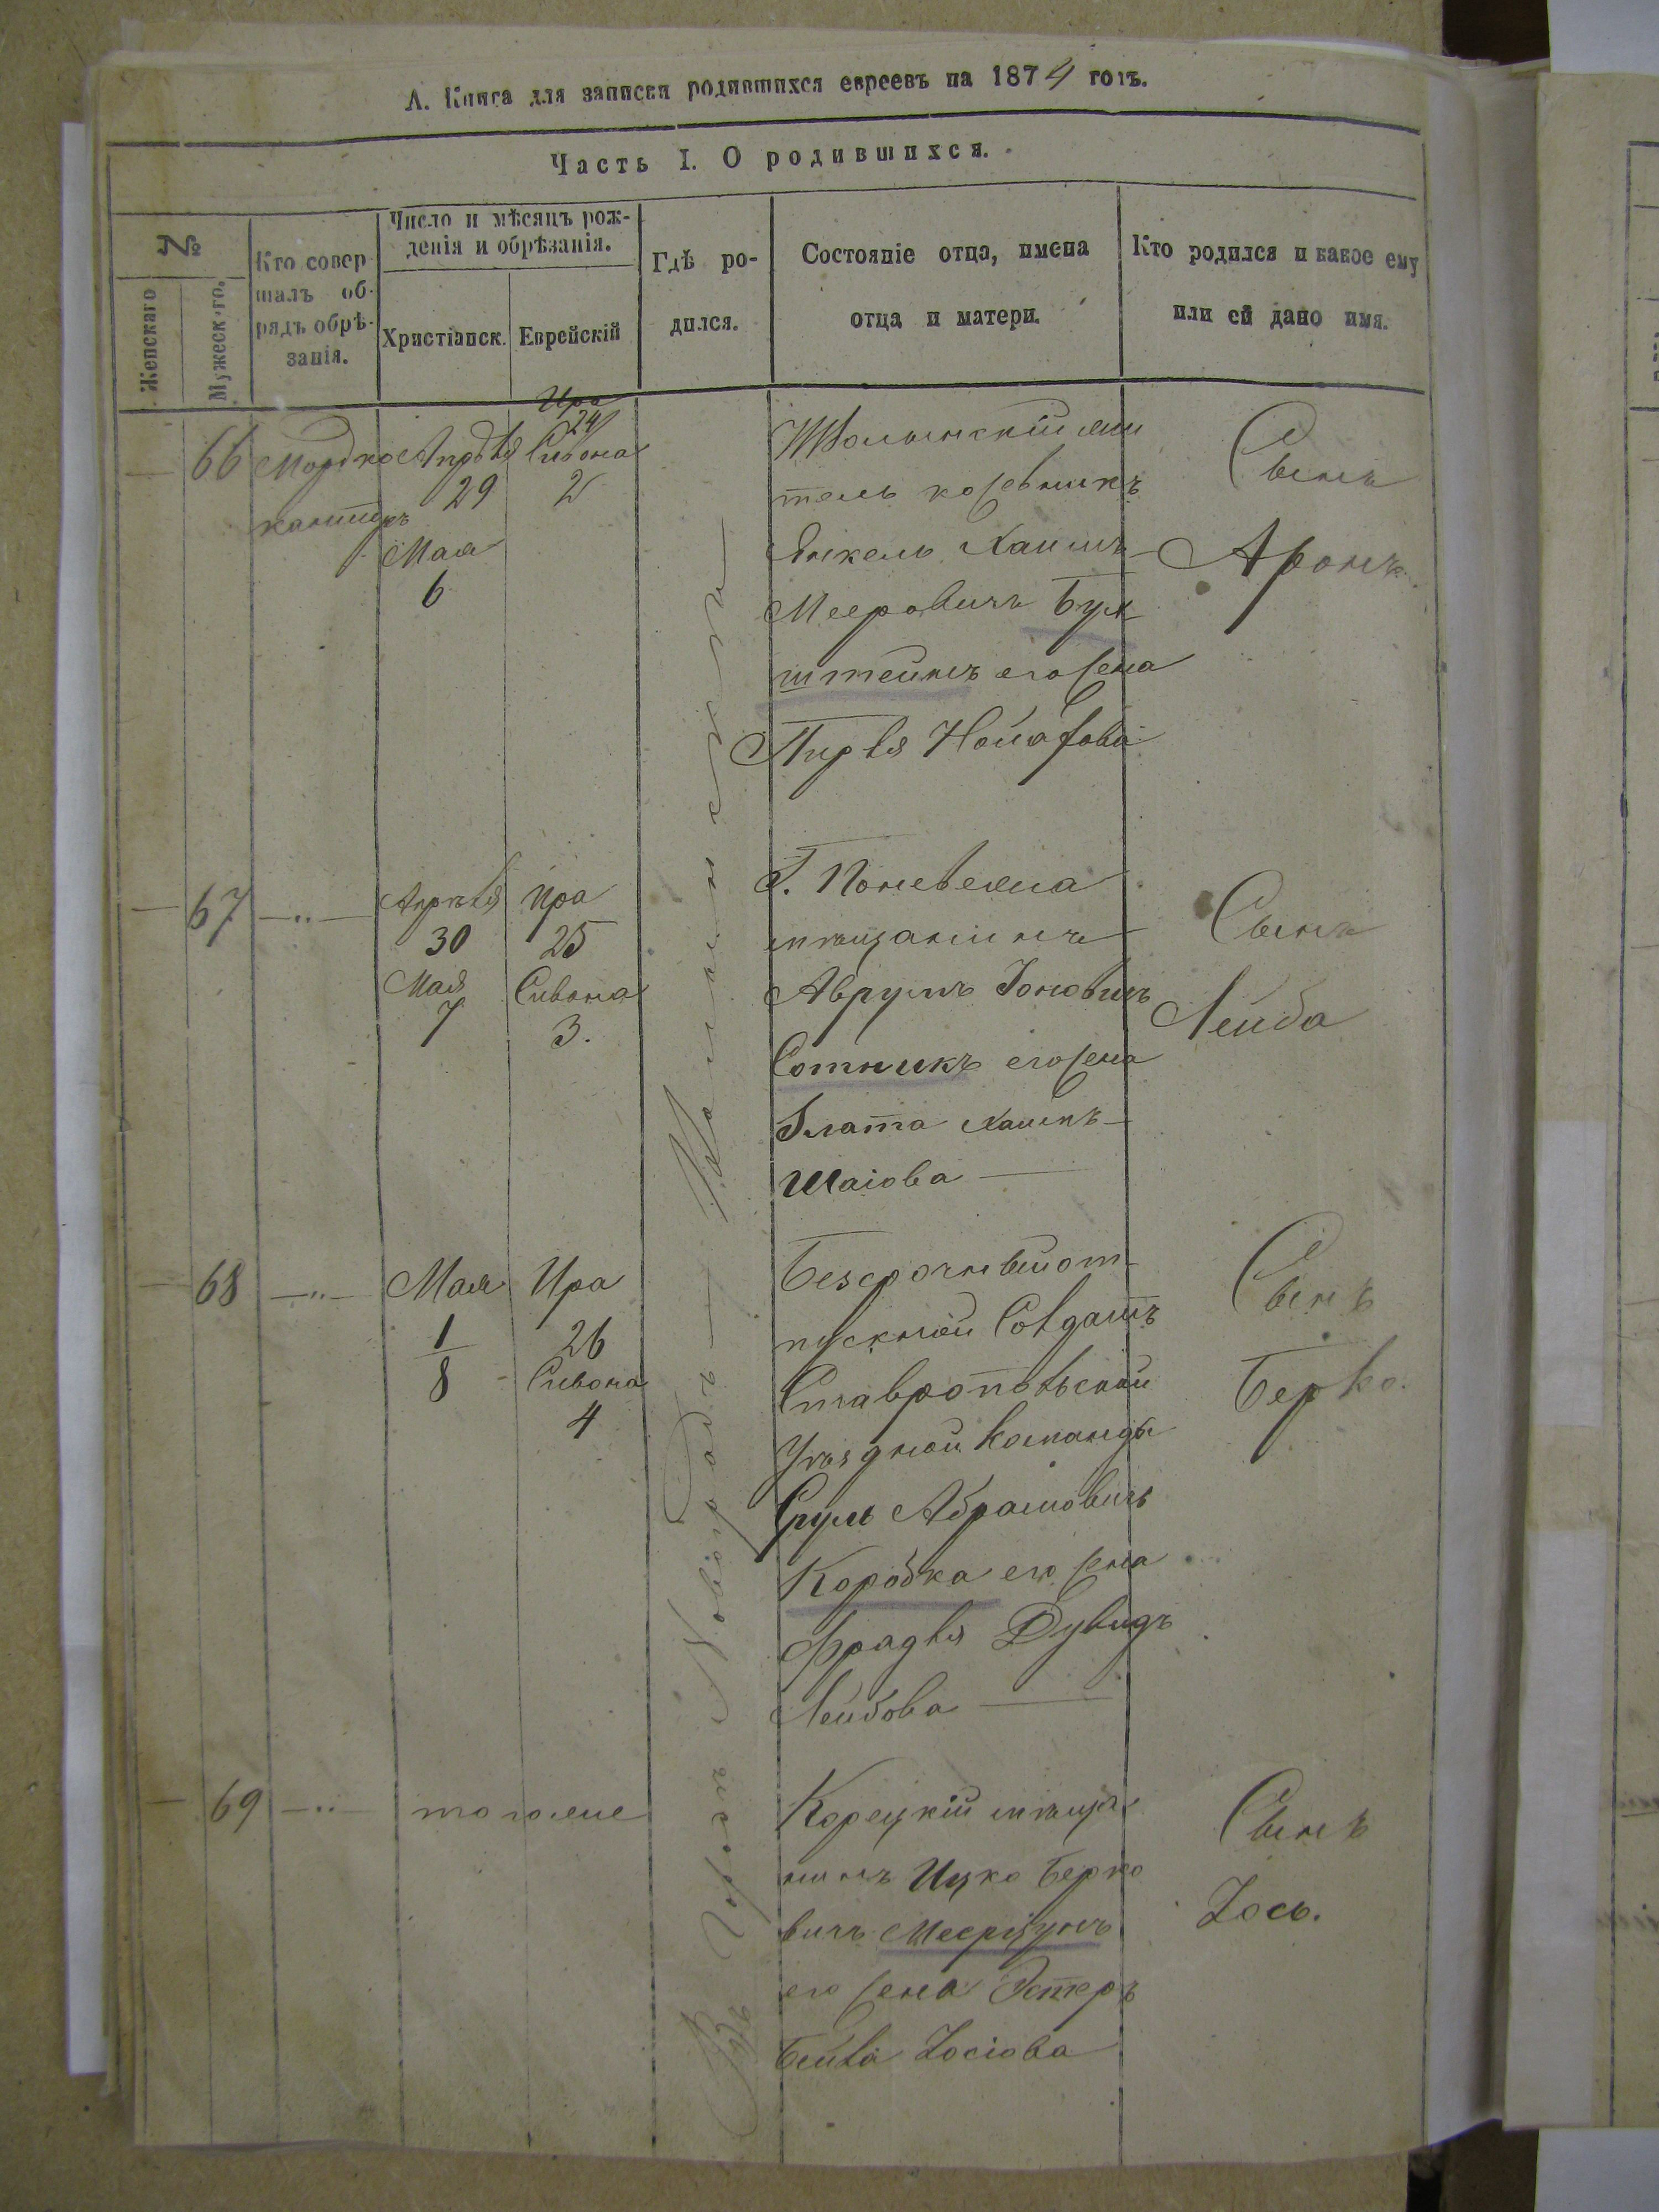 А. Книга для записки родившихся евреевъ на 1874 годъ.
Часть I. О родившихся.
№
Женскаго
Мужеск-го.
Кто совер-
шалъ об-
рядъ обрѣ-
занія.
Число и мѣсяцъ рож-
денія и обрѣзанія.
Христіанск.
Еврейскій
Гдѣ ро-
дился.
Состояніе отца, имена
отца и матери.
Кто родился и какое ему
или ей дано имя.
Въ Городѣ Новоградъ
66
Мордко
канторъ
Апрѣля
29
Мая
6
Ира
24
Сивона
2
житель
Янкель Хаимъ
Мееровичъ Бук
штейнъ его жена
Пирля
Сынъ
Аронъ.
67
—"—
Апрѣля
30
Мая
7
Ира
25
Сивона
3.
Г. Поневежа
мѣщанинъ
Аврумъ Іоновичъ
Сотникъ его жена
Злата Хаимъ
Шаіова
Сынъ
Лейба
68
—"—
Мая
1
8
Ира
26
Сивона
4
Безсрочныйот-
пускной Солдатъ
Ставропольской
Уѣздной Команды
Сруль Абрамовичъ
Коробка его жена
Фрадля Дувидъ
Лейбова
Сынъ
Берко.
69
—"—
тогоже
Корецкій мѣща
нинъ Ицко Берко
вичъ
его жена Эстеръ
Бейла Іосіова
Сынъ
Іось.